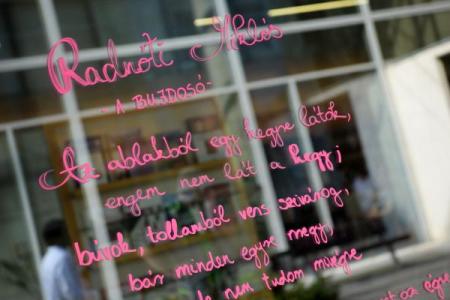 Radnóti Miklós
- A BUJDOSÓ -
Az ablakból egy hegyre látok,
engem nem lát a hegy;
búvok, tollamból vers szivárog,
bár minden egyre megy;
de nem tudom mivégre
ez az égre